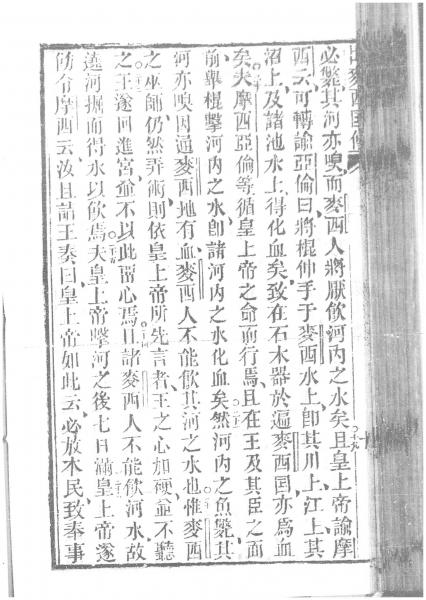 出麥西國傳
必斃其河亦嗅而麥西人將厭飲河內之水矣十九且皇上帝諭摩
西云可轉諭亞倫曰將棍伸手于麥西水上卽其川上江上其
沼上及諸池水上得化血矣致在石木器於遍麥西國亦為血
矣夫摩西亞倫等循皇上帝之命而行焉且在王及其臣之面
前舉棍擊河內之水卽諸河內之水化血矣然河內之魚斃其
河亦嗅因遍麥西地有血麥西人不能飲其河之水也惟麥西
之巫師仍然弄術則依皇上帝所先言者王之心加硬並不聽
之王遂回進宮並不以此畱心焉且諸麥西人不能飲河水故
遶河掘而得水以飲焉夫皇上帝擊河之後七日滿皇上帝遂
飭令摩西云汝且詣王奏曰皇上帝如此云必放本民致奉事